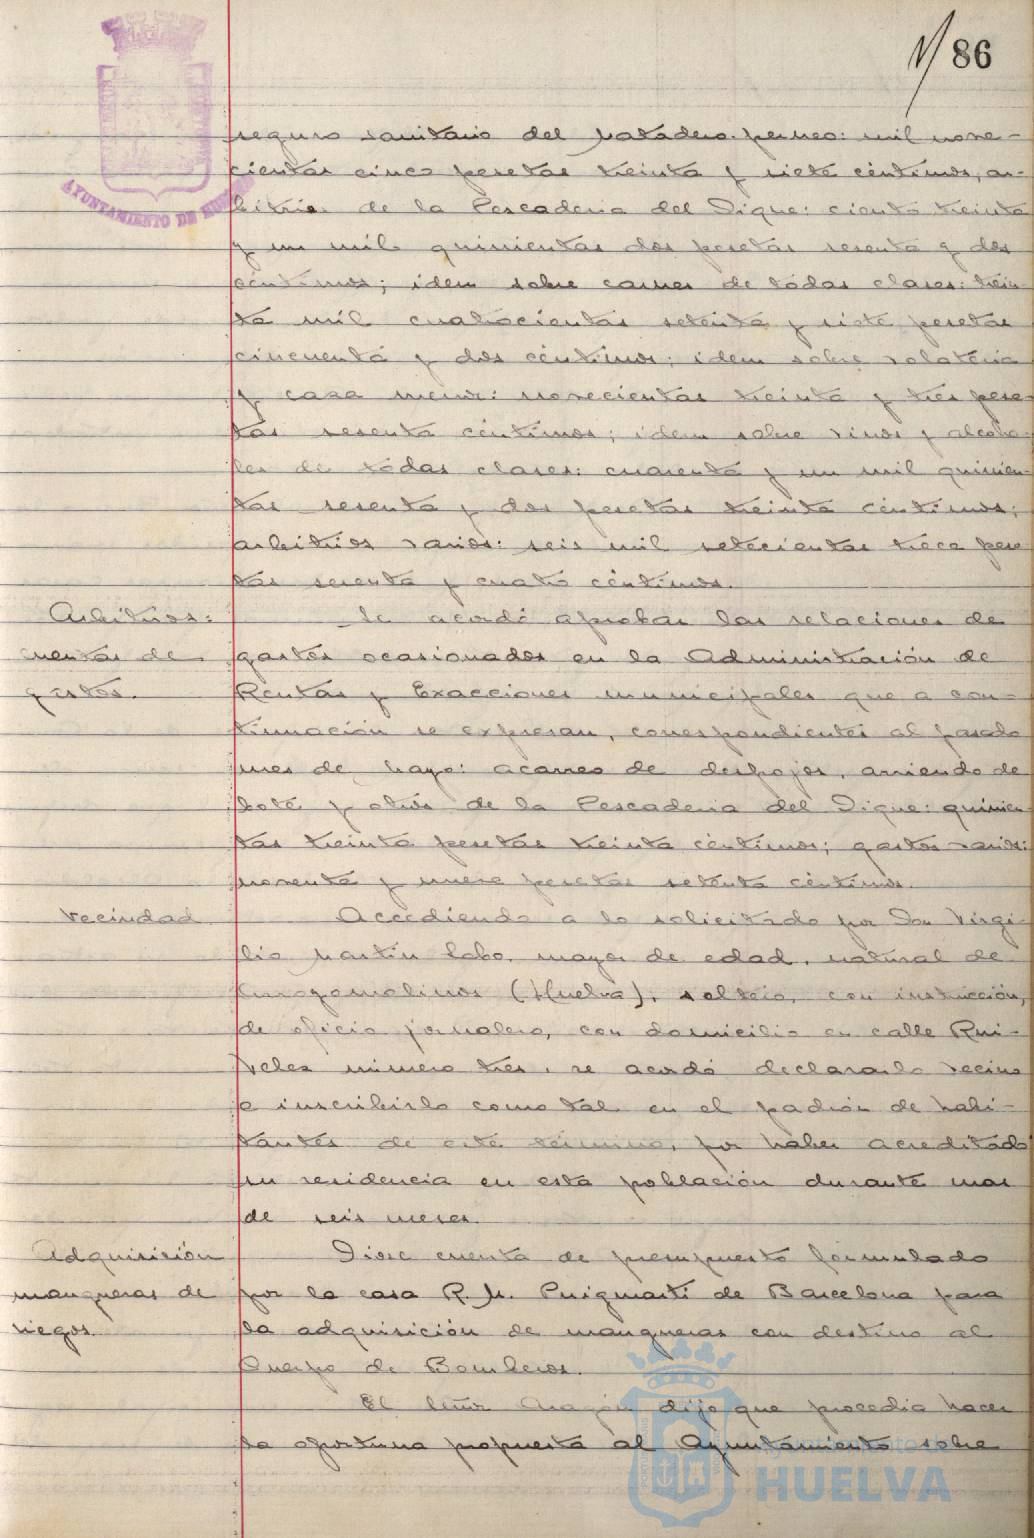 86
AYUNTAMIENTO DE HUELVA
seguro sanitario del Matadero: perneo: mil nove-
cientas cinco pesetas treinta y siete céntimos, ar-
bitrio de la Pescaderia del Dique: ciento treinta
y un mil quinientas dos pesetas sesenta y dos
céntimos; idem sobre carnes de todas clases: trein-
ta mil cuatrocientas setenta y siete pesetas
cincuenta y dos céntimos; idem sobre volateria
y caza menor: novecientas treinta y tres pese-
tas sesenta céntimos; idem sobre vinos y alcoho-
les de todas clases: cuarenta y un mil quinien-
tas sesenta y dos pesetas treinta céntimos;
arbitrios varios: seis mil setecientas trece pese
tas sesenta y cuatro céntimos.
Arbitrios:
cuentas de
gastos.
Se acordó aprobar las relaciones de
gastos ocasionados en la Administración de
Rentas y Exacciones municipales que a con-
tinuación se expresan, correspondientes al pasado
mes de Mayo: acarreo de despojos, arriendo de
bote y otros de la Pescaderia del Dique: quinien-
tas treinta pesetas treinta céntimos; gastos varios:
noventa y nueve pesetas setenta céntimos.
Vecindad
Accediendo a lo solicitado por Don Virgi-
lio Martin Lobo, mayor de edad, natural de
Puzogomolinos (Huelva), soltero, con instrucción,
de oficio jornalero, con domicilio en calle Rui-
Velez número tres, se acordó declararlo vecino
e inscribirlo como tal en el padrón de habi-
tantes de este término, por haber acreditado
su residencia en esta población durante mas
de seis meses.
Adquisición
mangueras de
riegos.
Diose cuenta de presupuesto formulado
por la casa R. M. Puigmarti de Barcelona para
la adquisición de mangueras con destino al
Cuerpo de Bomberos.
El Señor Aragón dijo que procedia hacer
la oportuna propuesta al Ayuntamiento sobre
Ayuntamiento de
HUELVA